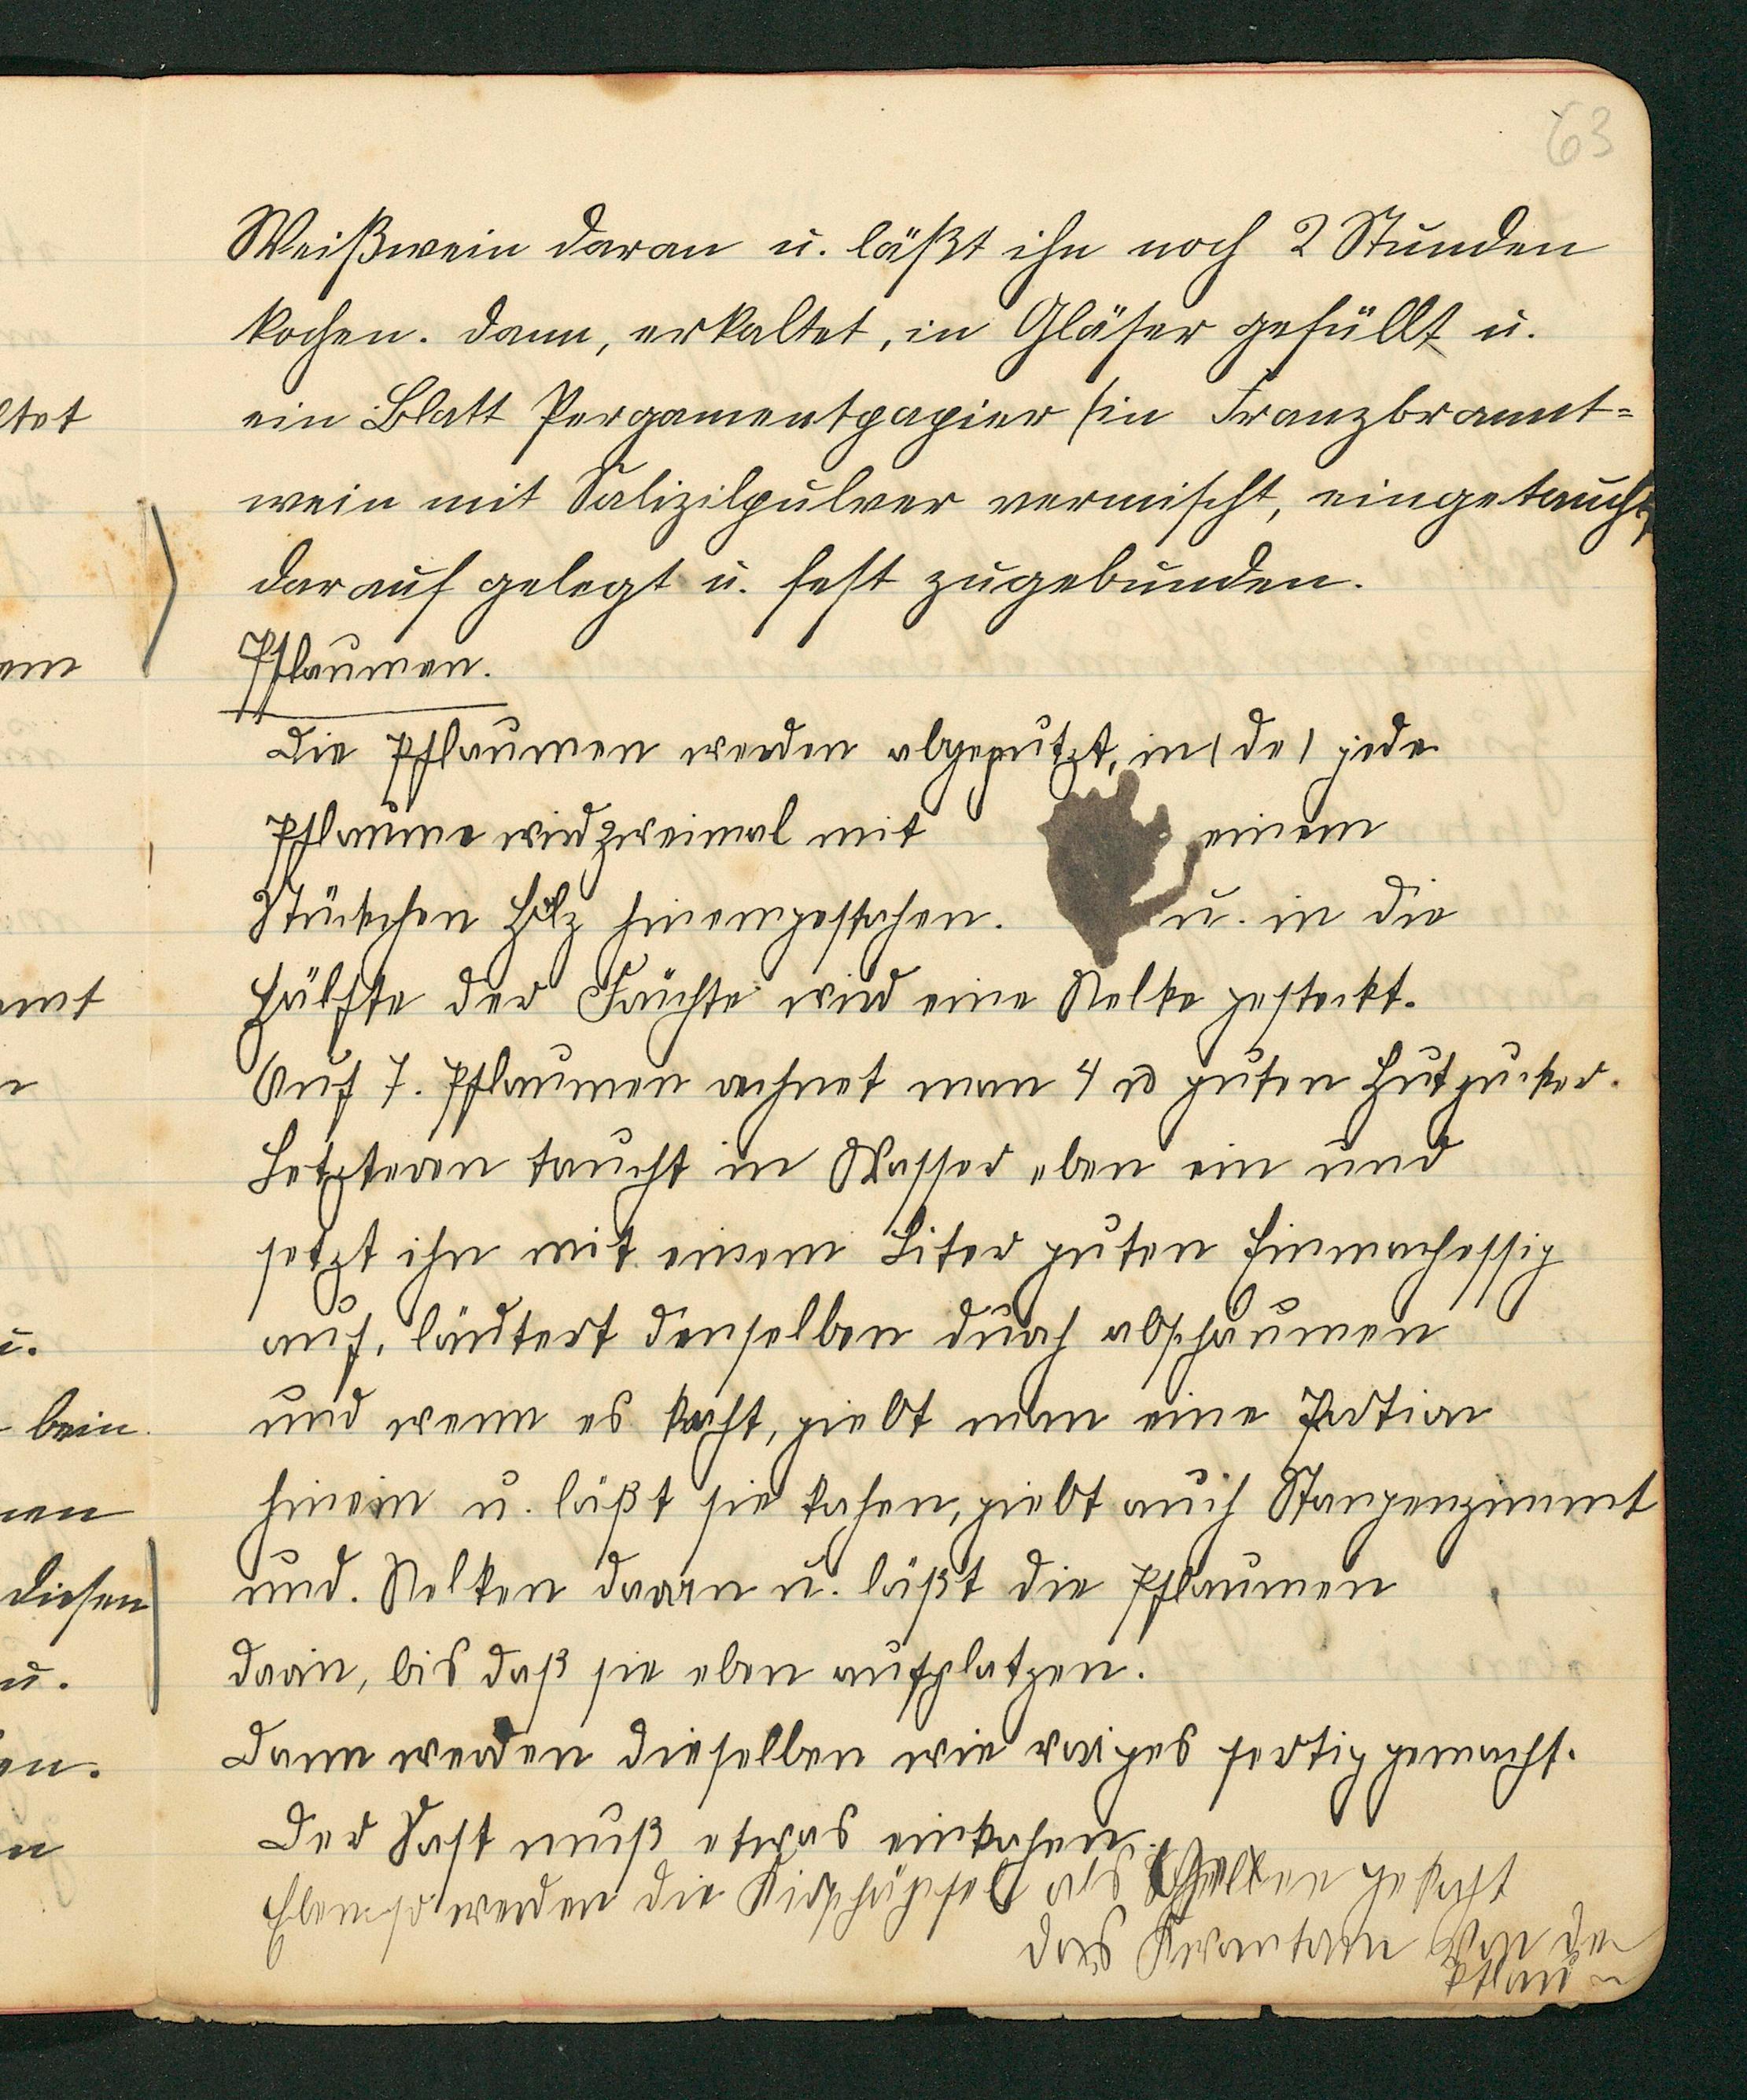 63
Weißwein daran u. läßt ihn noch 2 Stunden
kochen. Dann, erkaltet, in Gläser gefüllt u.
ein Blatt Pergamentpapier (in Franzbrannt=
wein mit Salizilpulver vermischt, eingetaucht,
darauf gelegt u. fest zugebunden.
Pflaumen.
Die Pflaumen werden abgeputzt, in (de) jede
Pflaume wird zweimal mit einem
Stückchen Holz hineingestochen. u. in die
Hälfte der Früchte wird eine Nelke gesteckt.
Auf 7. Pflaumen rechnet man 4 ℔ guten Hutzucker.
Letzteren taucht in Wasser eben ein und
setzt ihn mit einem Liter guten Einmachessig
auf, läutert denselben durch abschäumen
und wenn es kocht, giebt man eine Portion
hinein u. läßt sie kochen, giebt auch Stangenzimmt
und. Nelken daran u. läßt die Pflaumen
darin, bis daß sie eben aufplatzen.
Dann werden dieselben wie voriges fertig gemacht.
Der Saft muß etwas einkochen.
Ebenso werden die als gekocht
das Kwantum von de
Pflau
ltet
em
n
u.
bein
nen
diesen
u.
en.
n